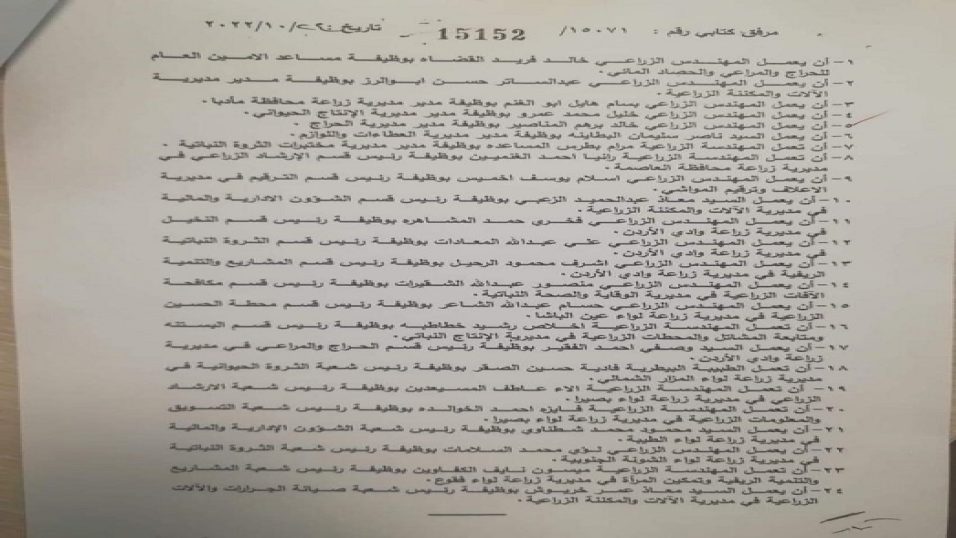 مرفق كتابي رقم : ١٥٠٧١/ 15152 تاريخ ٢٠٢٢/١٠/
١- أن يعمل المهندس الزراعي خالد فريد القضاه بوظيفة مساعد الامين العام
للحراج والمراعي والحصاد المائي .
٢- أن يعمل المهندس الزراعي عبدالساتر حسن ابوالرز بوظيفة مدير مديرية
الآلات والمكننة الزراعية .
٣- أن يعمل المهندس الزراعي بسام هايل ابو الغنم بوظيفة مدير مديرية زراعة محافظة مادبا .
٤- أن يعمل المهندس الزراعي خليل محمد عمرو بوظيفة مدير مديرية الإنتاج الحيواني .
٥- أن يعمل المهندس الزراعي خالد برهم المناصير بوظيفة مدير مديرية الحراج .
٦- أن يعمل السيد ناصر سليمان البطاينه بوظيفة مدير مديرية العطاءات واللوازم .
٧- أن تعمل المهندسة الزراعية مرام بطرس المساعده بوظيفة مدير مديرية مختبرات الثروة النباتية .
٨- أن تعمل المهندسة الزراعية رانيا احمد الغنميين بوظيفة رئيس قسم الإرشاد الزراعي في
مديرية زراعة محافظة العاصمة .
٩- أن يعمل المهندس الزراعي اسلام يوسف اخميس بوظيفة رئيس قسم الترقيم في مديرية
الاعلاف وترقيم المواشي .
١٠- أن يعمل السيد معاذ عبدالحميد الزعبي بوظيفة رئيس قسم الشؤون الادارية والمالية
في مديرية الآلات والمكننة الزراعية .
١١- أن يعمل المهندس الزراعي فخري حمد المشاهره بوظيفة رئيس قسم النخيل
في مديرية زراعة وادي الأردن .
١٢- أن يعمل المهندس الزراعي علي عبدالله المعادات بوظيفة رئيس قسم الثروة النباتية
في مديرية زراعة وادي الأردن .
١٣- أن يعمل المهندس الزراعي اشرف محمود الرحيل بوظيفة رئيس قسم المشاريع والتنمية
الريفية في مديرية زراعة وادي الأردن .
١٤- أن يعمل المهندس الزراعي منصور عبدالله الشقيرات بوظيفة رئيس قسم مكافحة
الآفات الزراعية في مديرية الوقاية والصحة النباتية .
١٥- أن يعمل المهندس الزراعي حسام عبدالله الشاعر بوظيفة رئيس قسم محطة الحسين
الزراعية في مديرية زراعة لواء عين الباشا .
١٦- أن تعمل المهندسة الزراعية اخلاص رشيد خطاطبه بوظيفة رئيس قسم البستنه
ومتابعة المشاتل والمحطات الزراعية في مديرية الإنتاج النباتي .
١٧- أن يعمل السيد وصفي احمد الفقير بوظيفة رئيس قسم الحراج والمراعي في مديرية
زراعة وادي الأردن .
١٨- أن تعمل الطبيبة البيطرية فادية حسين الصقر بوظيفة رئيس شعبة الثروة الحيوانية في
مديرية زراعة لواء المزار الشمالي .
١٩- أن تعمل المهندسة الزراعية الاء عاطف المسيعدين بوظيفة رئيس شعبة الارشاد
الزراعي في مديرية زراعة لواء بصيرا .
٢٠- أن تعمل المهندسة الزراعية فايزه احمد الخوالده بوظيفة رئيس شعبة التسويق
والمعلومات الزراعية في مديرية زراعة لواء بصيرا .
٢١- أن يعمل السيد محمود محمد شطناوي بوظيفة رئيس شعبة الشؤون الإدارية والمالية
في مديرية زراعة لواء الطيبة .
٢٢- أن يعمل المهندس الزراعي لؤي محمد السلامات بوظيفة رئيس شعبة الثروة النباتية
في مديرية زراعة لواء الشونة الجنوبية .
٢٣- أن تعمل المهندسة الزراعية ميسون نايف الكفاوين بوظيفة رئيس شعبة المشاريع
والتنمية الريفية وتمكين المرأة في مديرية زراعة لواء فقوع .
٢٤- أن يعمل السيد معاذ عمر خريوش بوظيفة رئيس شعبة صيانة الجرارات والآلات
الزراعية في مديرية الآلات والمكننة الزراعية .